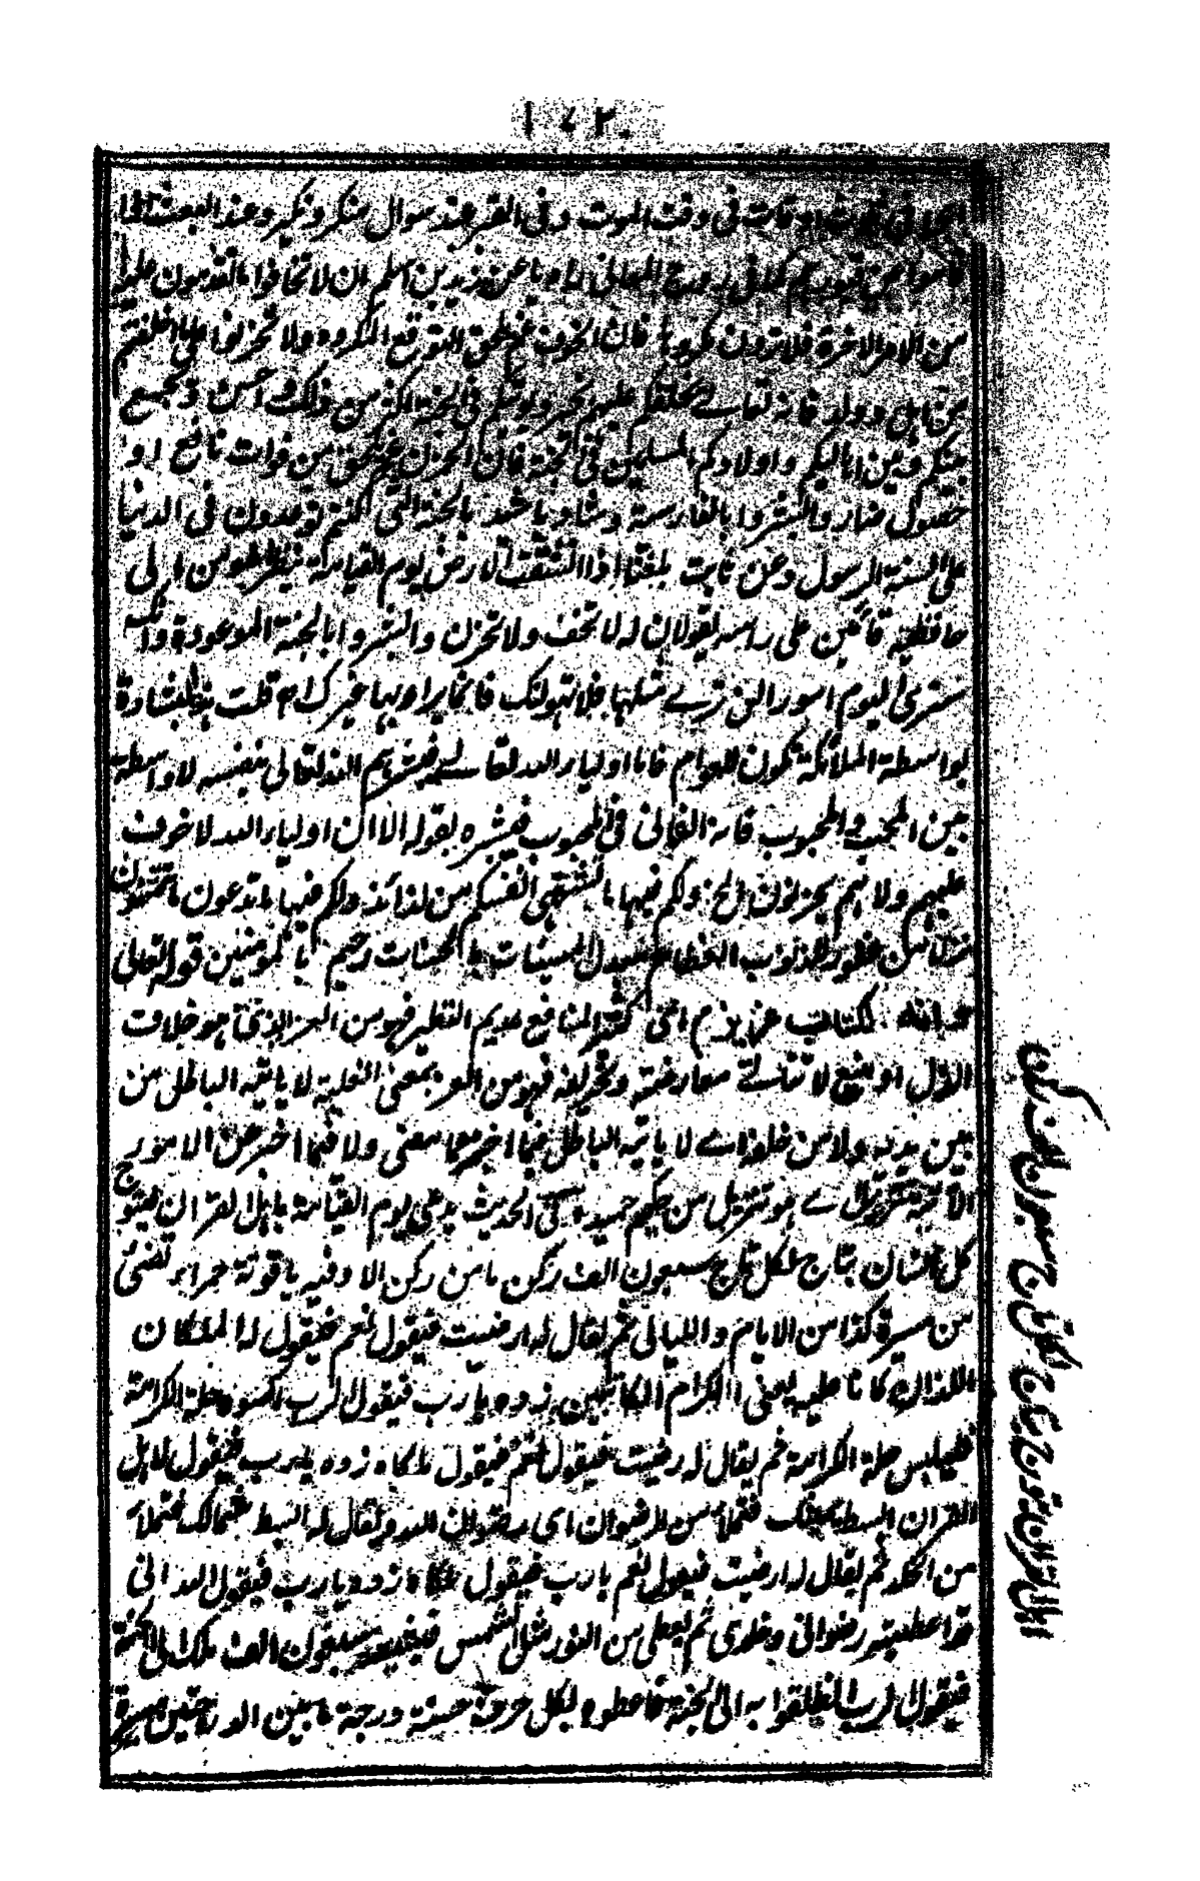 ١٧٢
في وقت الموت وفى القبر عند سوال منكر ونكير وعند البعث اذا
قاموا من قبورهم كما فى روح المعانى رواه عن زيد بن اسلم ان لا تخافوا ما تقدمون عليه
من الامر الاخرة فلا ترون مكروها فان الخوف غم يلحق لتوقع المكروه ولا تحزنوا على ما خلفتم
من اهل وولد فانه تعالى يخلفكم عليهم بخير ويعطيكم فى الجنة اكثر من ذلك و احسن و يجمع
بينكم وبين اهاليكم واولادكم المسلمين فى الجنة فان الحزن غم يلحق من فوات نافع او
حصول ضار وابشروا بالفارسية وشاد باشد بالجنة التى كنتم توعدون فى الدنيا
على السنة الرسول وعن ثابت بلغنا اذا انشقت الارض يوم القيامة ينظر المومن الى
حافظيه قائمين على راسه يقولان له لا تخف ولا تحزن وابشر بالجنة الموعودة وانك
سترى اليوم امورا لن ترى مثلها فلا تهولنك فانما يراد بها غيرك ام قلت هذا البشارة
بواسطة الملائكة تكون للعوام فاما اولياء الله تعالى فيبشرهم الله تعالى بنفسه لا واسطة
بين المحب والمحبوب فانه الفانى فى المحبوب فيبشره بقوله الا ان اولياء الله لا خوف
عليهم ولا هم يحزنون الخ ولكم فيها ما تشتهى انفسكم من لذائذ ولكم فيها ما تدعون ما تتمنون
نزلا من غفور للذنوب العظام مبدل السيئات بالحسنات رحيم بالمومنين قوله تعالى
وانه لكتاب عزيز م اى كثير المنافع عديم النظير فهو من العز الذى هو خلاف
الذل او منيع لا تتاتى معارضته وتحريفه فهو من العز بمعنى الغلبة لا ياتيه الباطل من
بين يديه ولا من خلفه اى لا ياتيه الباطل فيما اخبر عما مضى ولا فيما اخبر عن الامور
الآتية تنزيل اى هو تنزيل من حكيم حميد كى الحديث يدعى يوم القيامة باهل القران فيتوج
كل انسان بتاج لكل تاج سبعون الف ركن ما من ركن الا وفيه ياقوتة حمراء تضئ
من مسيرة كذا من الايام و الليالى ثم يقال له ارضيت فيقول نعم فيقول له الملكان
اللذان كانا عليه يعنى الكرام الكاتبين زده يا رب فيقول الرب اكسوه حلة الكرامة
فيلبس حلة الكرامة ثم يقال له ارضيت فيقول نعم فيقول ملكاه زده يا رب فيقول لاهل
القران ابسط يمينك فتملأ من الرضوان اى رضوان الله ويقال له ابسط شمالك فتملأ
من الخلد ثم يقال له ارضيت فيقول نعم يا رب فيقول ملكاه زده يا رب فيقول الله انى
قد اعطيته رضوانى وخلدى ثم يعطى من النور مثل الشمس فيشيعه سبعون الف ملك الى الجنة
فيقول الرب انطلقوا به الى الجنة فاعطوه بكل حرف حسنة ودرجة ما بين الدرجتين مسيرة